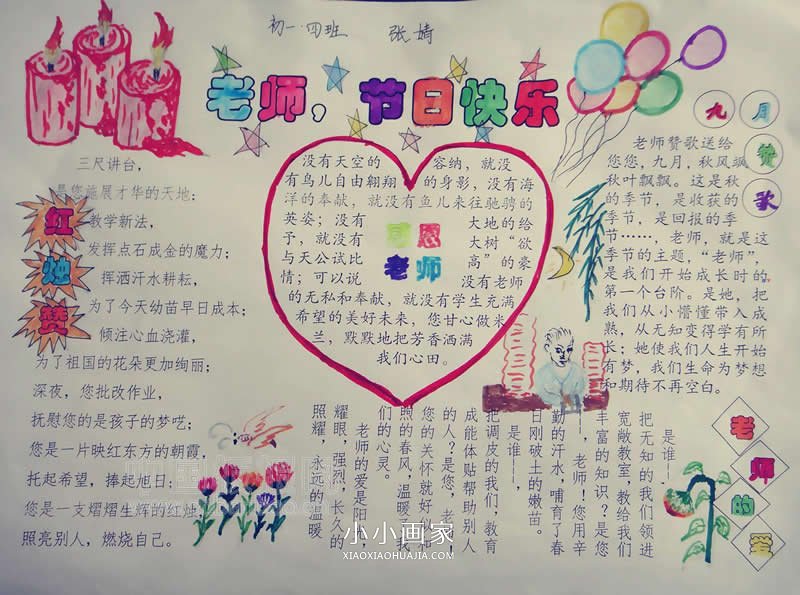 初一·四班 张婧
老师，节日快乐
红烛赞
三尺讲台，
是您施展才华的天地；
教学新法，
发挥点石成金的魔力；
挥洒汗水耕耘，
为了今天幼苗早日成本；
倾注心血浇灌，
为了祖国的花朵更加绚丽；
深夜，您批改作业，
抚慰您的是孩子的梦呓；
您是一片映红东方的朝霞，
托起希望，捧起旭日；
您是一支熠熠生辉的红烛，
照亮别人，燃烧自己。
没有天空的容纳，就没
有鸟儿自由翱翔的身影，没有海
洋的奉献，就没有鱼儿来往驰骋的
英姿；没有大地的给
予，就没有大树“欲
与天公试比高”的豪
情；可以说没有老师
的无私和奉献，就没有学生充满
希望的美好未来，您甘心做米
兰，默默地把芳香洒满
我们心田。
感恩
老师
九月赞歌
老师赞歌送给
您您，九月，秋风飒
秋叶飘飘。这是秋
的季节，是收获的
季节，是回报的季
节……，老师，就是这
季节的主题，“老师”，
是我们开始成长时的
第一个台阶。是她，把
我们从小懵懂带入成
熟，从无知变得学有所
长；她使我们人生开始
有梦，我们生命为梦想
和期待不再空白。
老师的爱
是谁——
把无知的我们领进
宽敞教室，教给我们
丰富的知识？是您
——，老师！您用辛
勤的汗水，哺育了春
日刚破土的嫩苗。
是谁——
把调皮的我们，教育
成能体贴帮助别人
的人？是您，老
您的关怀就好似和
煦的春风，温暖了我
们的心灵。
老师的爱是阳
耀眼，强烈，长久的
照耀，永远的温暖
小小画家
XIAOXIAOHUAJIA.COM